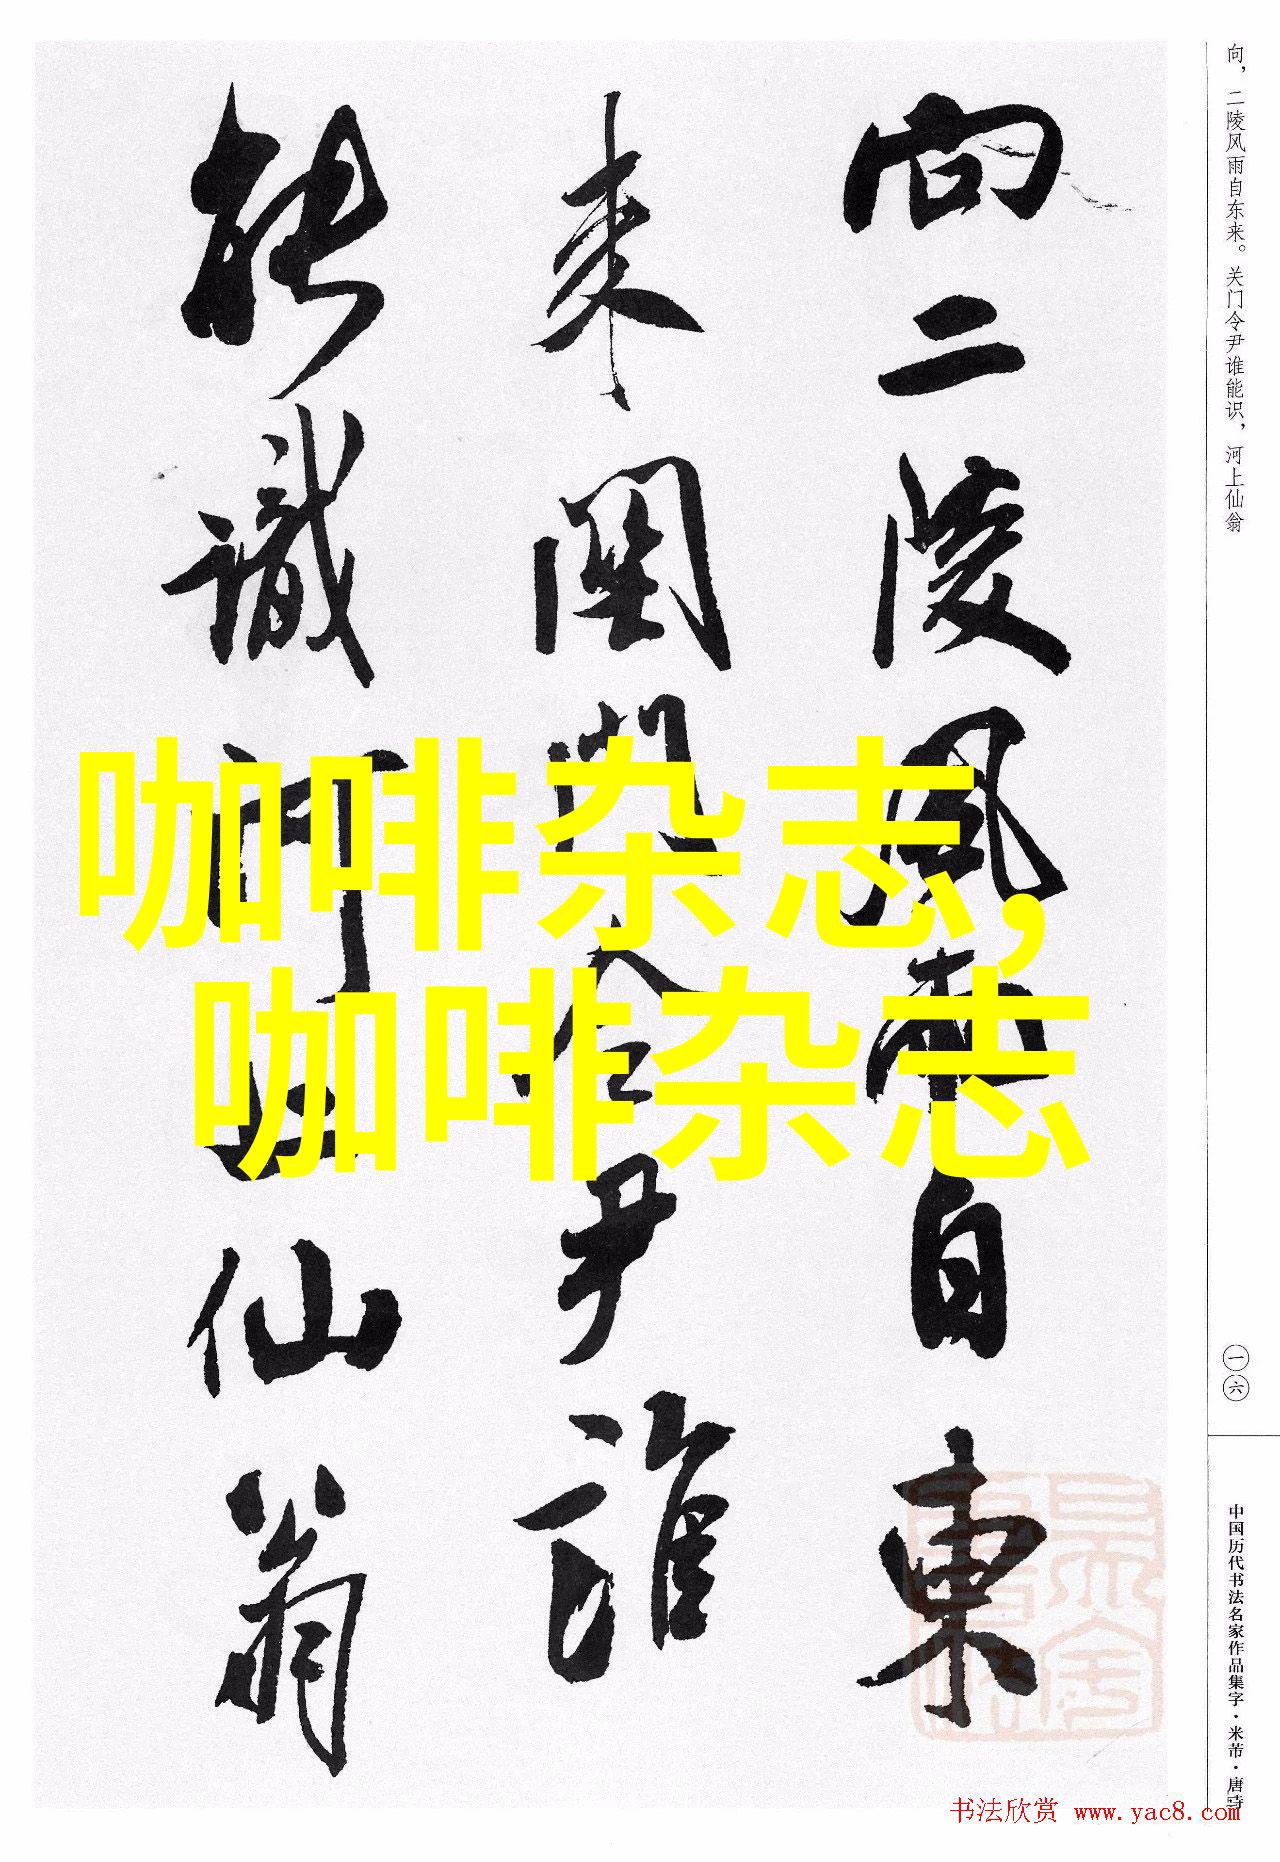 向，二陵风雨自东来。关门令尹谁能识，河上仙翁
向二陵風雨自東
来關門令尹誰
能識河上仙翁
咖啡杂志，
咖啡杂志
一六
中国历代书法名家作品集字·米芾·唐诗
书法欣赏 www.yac8.com